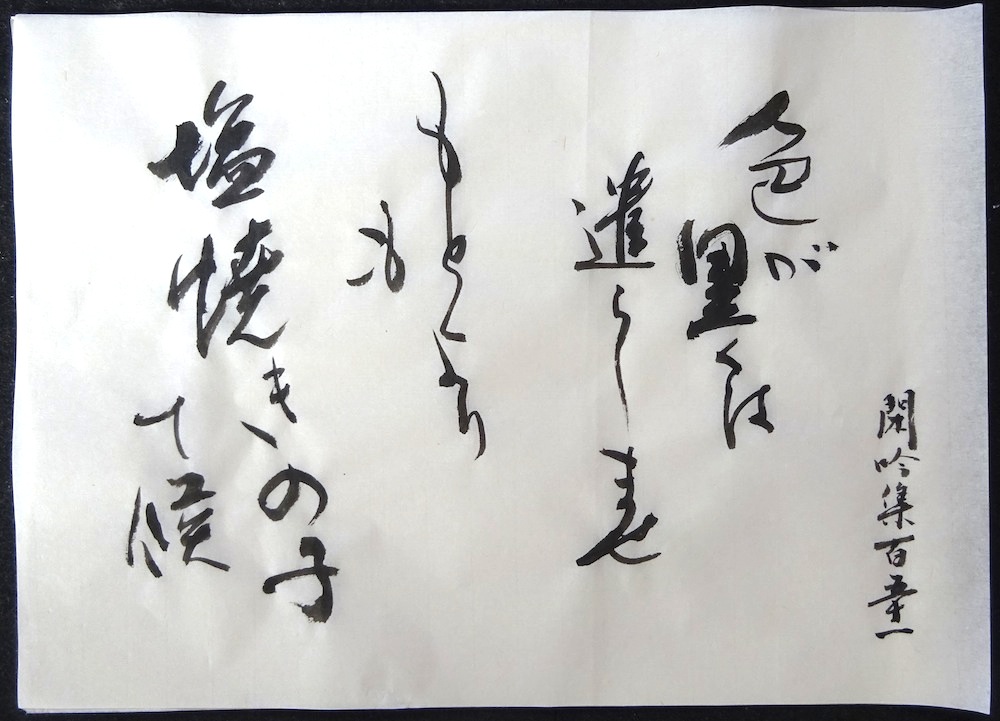 閑吟集百五十一
色が
黒くは
遣らしませ
もとより
も
塩焼きの子
て候